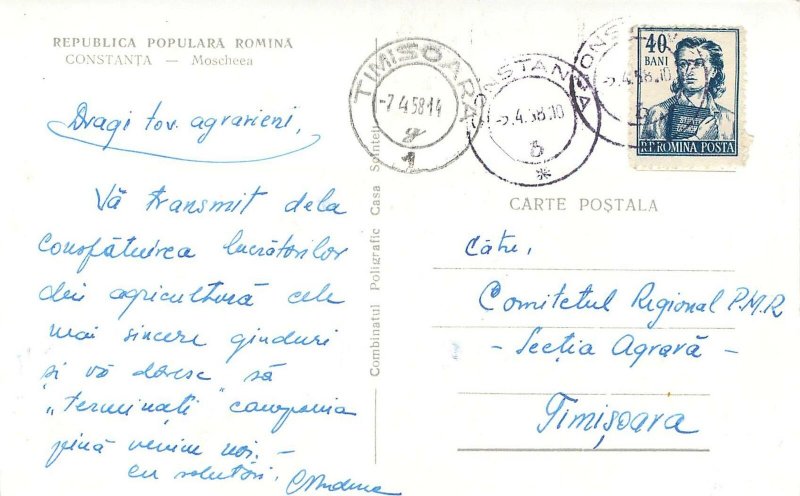 REPUBLICA POPULARĂ ROMINĂ
CONSTANȚA — Moscheea
Dragi tov. agrarieni,
Vă transmit dela
consfătuirea lucrătorilor
din agricultură cele
mai sincere ginduri
și vă doresc să
"terminați" campania
pină venim noi. —
cu salutări,
Combinatul Poligrafic Casa Scînteii
TIMISOARA
-7.4.58 14
1
CONSTANTA
-5.4.58.10
5
*
CONSTANTA
-5.4.58.10
40
BANI
R.P. ROMINA POSTA
CARTE POȘTALA
Către,
Comitetul Regional P.M.R
- Secția Agrară -
Timișoara